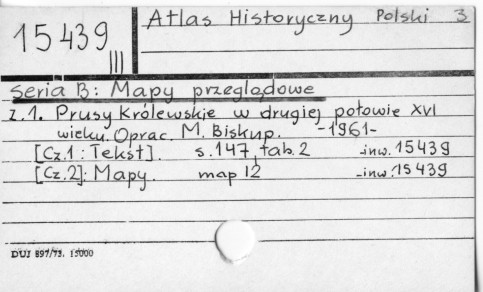 15439
III
Atlas Historyczny Polski 3
Seria B: Mapy przeglądowe
z.1. Prusy Królewskie w drugiej połowie XVI
wieku. Oprac. M. Biskup. -1961-
[Cz.1: Tekst]. s.147, tab.2 -inw.15439
[Cz.2]: Mapy. map 12 -inw.15439
DUJ 897/73. 15000